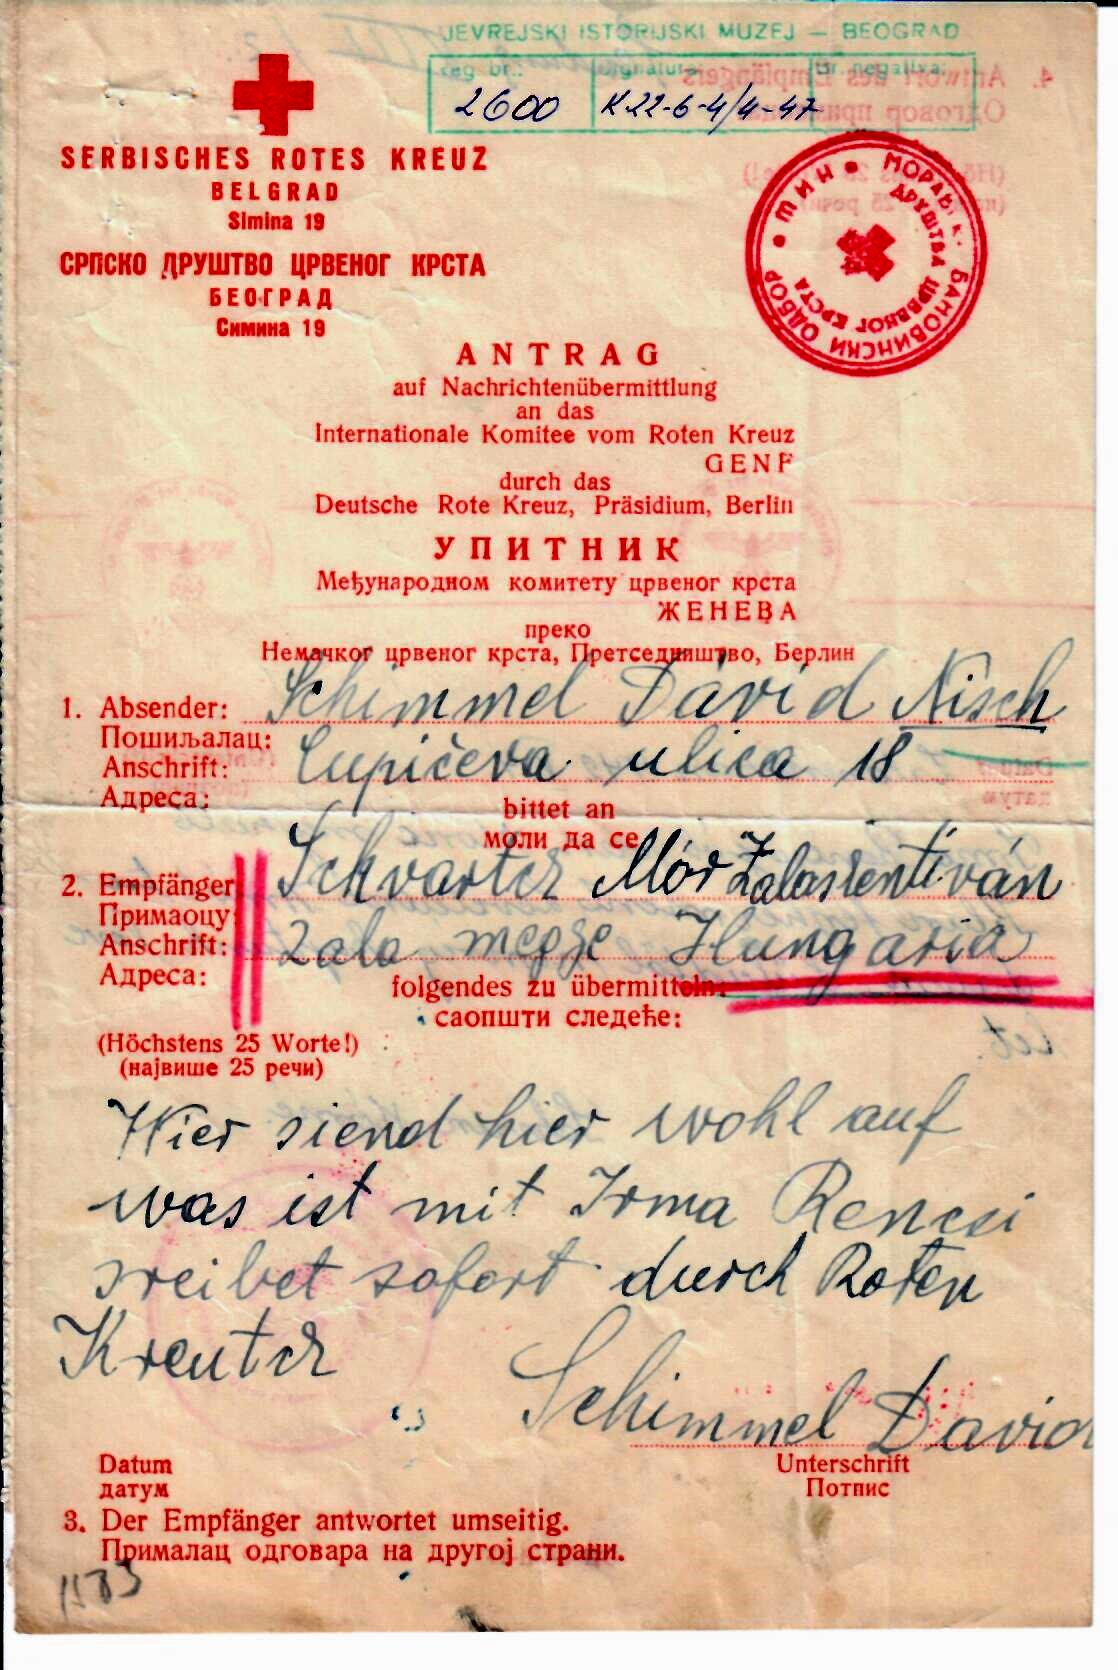 JEVREJSKI ISTORIJSKI MUZEJ — BEOGRAD
reg br.: signatura: br. negativa:
2600 K 22-6-4/4-47
SERBISCHES ROTES KREUZ
BELGRAD
Simina 19
СРПСКО ДРУШТВО ЦРВЕНОГ КРСТА
БЕОГРАД
Симина 19
МОРАВ К. БАНОВИНСКИ ОДБОР • НИШ •
ДРУШТВА ЦРВЕНОГ КРСТА
ANTRAG
auf Nachrichtenübermittlung
an das
Internationale Komitee vom Roten Kreuz
GENF
durch das
Deutsche Rote Kreuz, Präsidium, Berlin
УПИТНИК
Међународном комитету црвеног крста
ЖЕНЕВА
преко
Немачког црвеног крста, Претседништво, Берлин
1. Absender: Schimmel Dávid Nisch
Пошиљалац:
Anschrift: Lupičeva ulica 18
Адреса:
bittet an
моли да се
2. Empfänger Schvartcz Mór Zalasientiván
Примаоцу
Anschrift: Zala megye Hungaria
Адреса:
folgendes zu übermitteln:
саопшти следеће:
(Höchstens 25 Worte!)
(највише 25 речи)
Wier siend hier wohl auf
was ist mit Irma Rencsi
sreibet sofort durch Roten
Kreutcz
Schimmel David
Datum Unterschrift
датум Потпис
3. Der Empfänger antwortet umseitig.
Прималац одговара на другој страни.